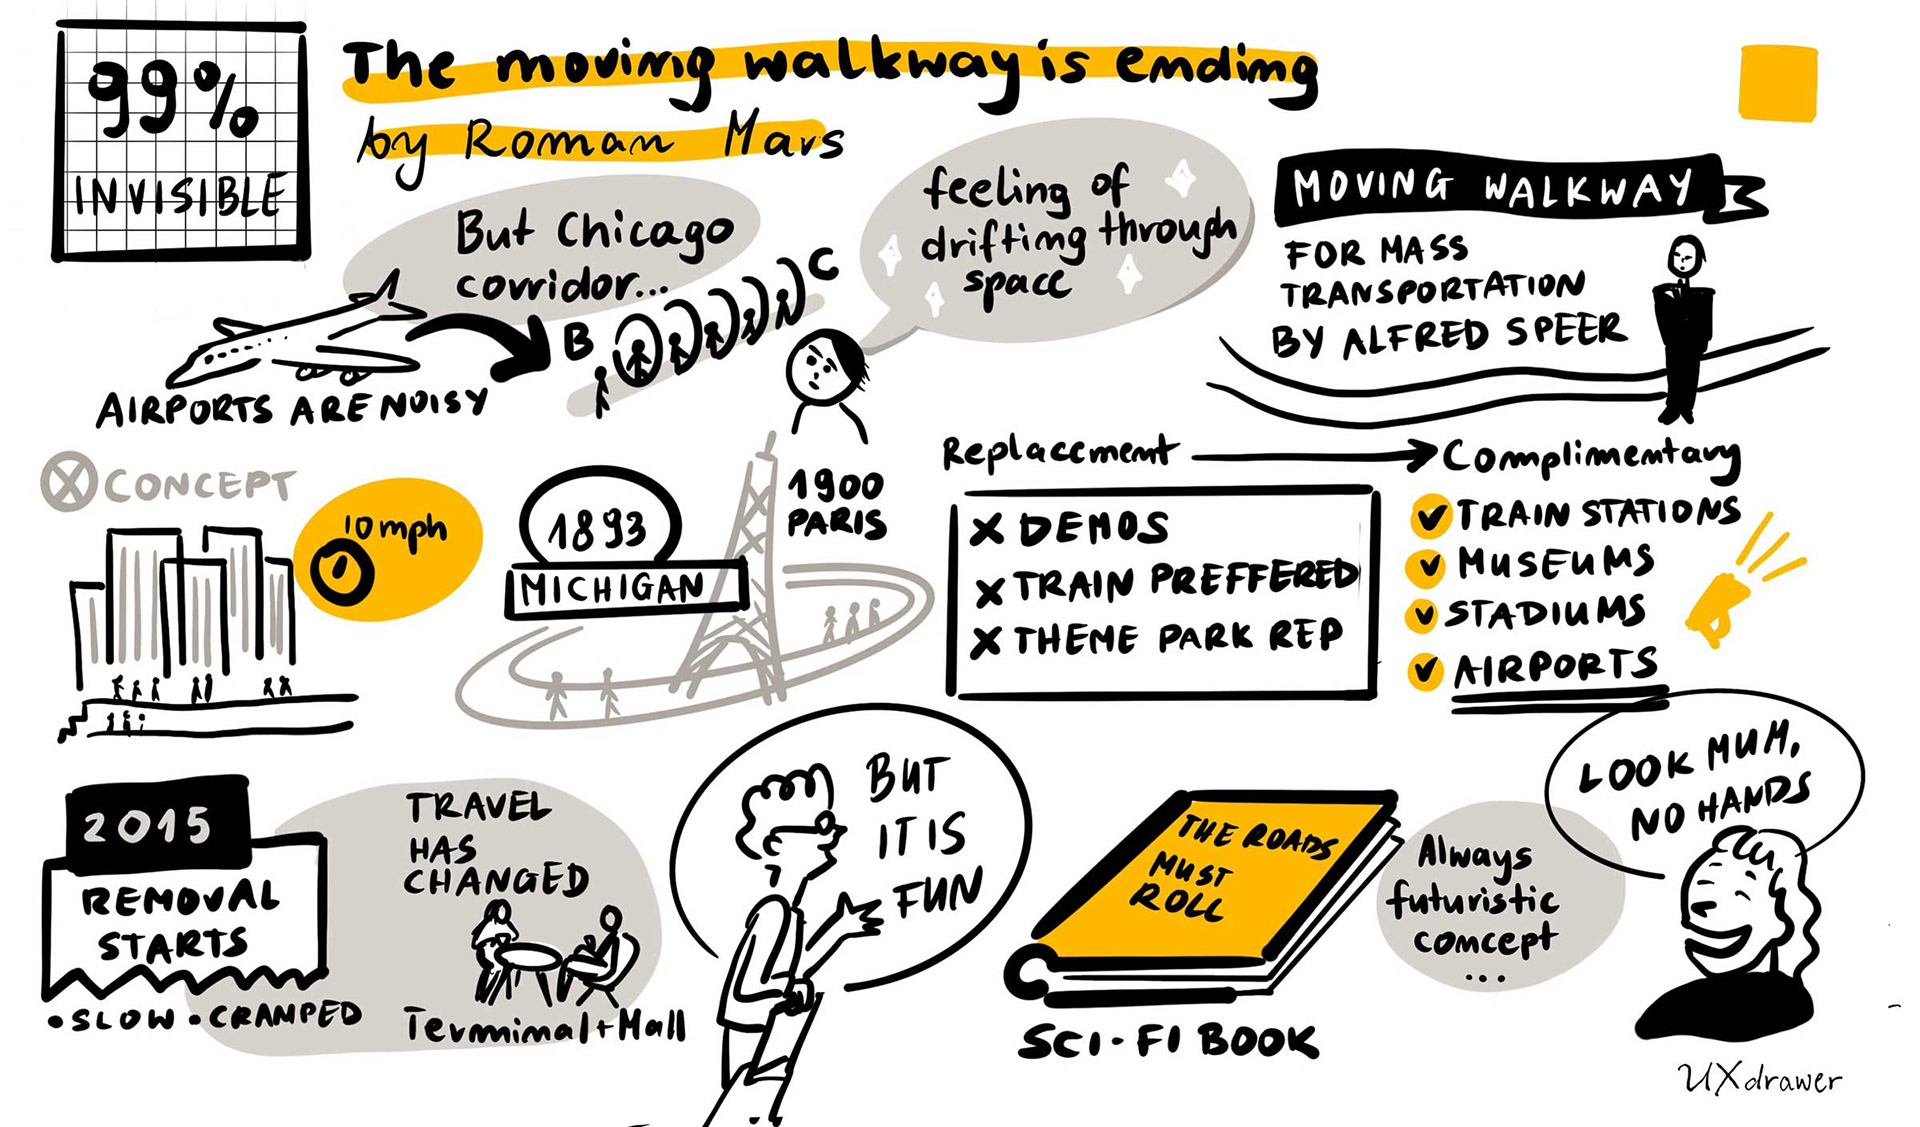 99%
INVISIBLE
The moving walkway is ending
by Roman Mars
But Chicago
corridor...
B
C
AIRPORTS ARE NOISY
feeling of
drifting through
space
MOVING WALKWAY
FOR MASS
TRANSPORTATION
BY ALFRED SPEER
CONCEPT
10mph
1893
MICHIGAN
1900
PARIS
Replacement
Complimentary
X DEMOS
X TRAIN PREFFERED
X THEME PARK REP
TRAIN STATIONS
MUSEUMS
STADIUMS
AIRPORTS
2015
REMOVAL
STARTS
• SLOW • CRAMPED
TRAVEL
HAS
CHANGED
Terminal + Mall
BUT
IT IS
FUN
THE ROADS
MUST
ROLL
SCI-FI BOOK
Always
futuristic
concept
...
LOOK MUM,
NO HANDS
UXdrawer